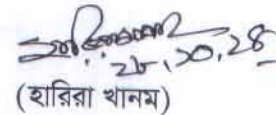 ২৮.১০.২৪
(হারিরা খানম)